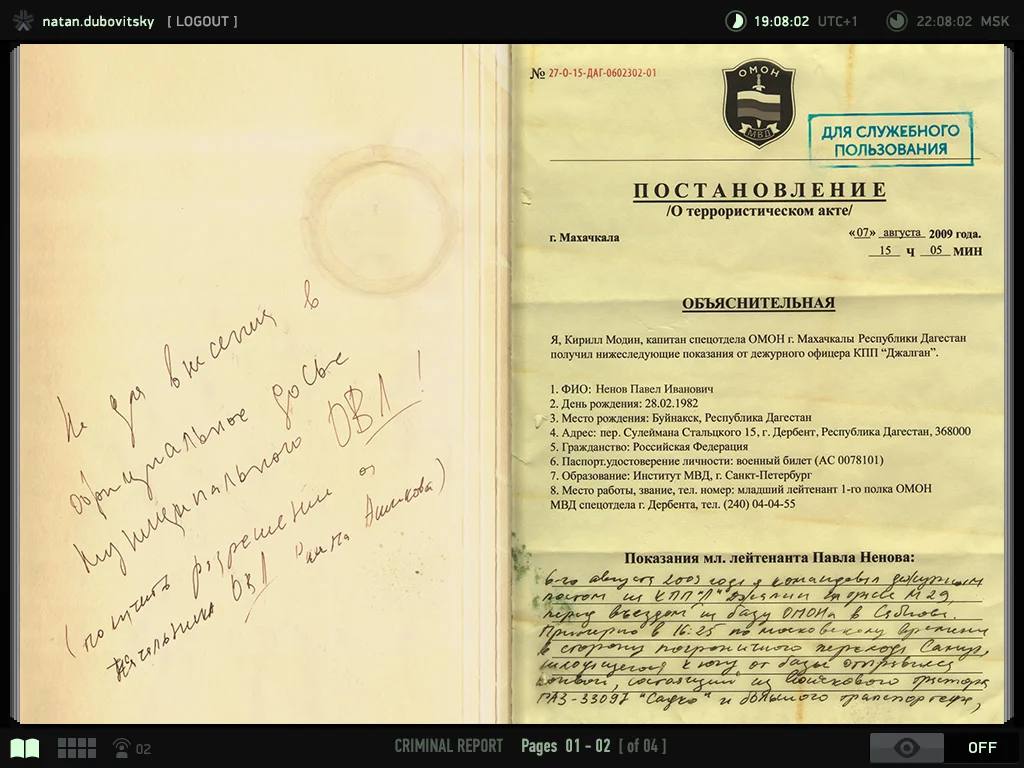 natan.dubovitsky [ LOGOUT ]
19:08:02 UTC+1
22:08:02 MSK
Не для внесения в
официальное досье
муниципального ОВД!
(получить разрешение от
начальника ОВД
№ 27-О-15-ДАГ-0602302-01
ОМОН
МВД
ДЛЯ СЛУЖЕБНОГО
ПОЛЬЗОВАНИЯ
ПОСТАНОВЛЕНИЕ
/О террористическом акте/
г. Махачкала
«07» августа 2009 года.
15 Ч 05 МИН
ОБЪЯСНИТЕЛЬНАЯ
Я, Кирилл Модин, капитан спецотдела ОМОН г. Махачкалы Республики Дагестан
получил нижеследующие показания от дежурного офицера КПП “Джалган”.
1. ФИО: Ненов Павел Иванович
2. День рождения: 28.02.1982
3. Место рождения: Буйнакск, Республика Дагестан
4. Адрес: пер. Сулеймана Стальцкого 15, г. Дербент, Республика Дагестан, 368000
5. Гражданство: Российская Федерация
6. Паспорт.удостоверение личности: военный билет (АС 0078101)
7. Образование: Институт МВД, г. Санкт-Петербург
8. Место работы, звание, тел. номер: младший лейтенант 1-го полка ОМОН
МВД спецотдела г. Дербента, тел. (240) 04-04-55
Показания мл. лейтенанта Павла Ненова:
6-го августа 2009 года я командовал дежурным
постом на КПП
М29,
перед въездом на базу ОМОНа в
Примерно в 16:25 по московскому времени
в сторону пограничного перехода Самур,
находящегося к югу от базы отправился
конвой, состоящий из войскового трактора
ГАЗ-33097 "Садко" и большого транспортера,
02
CRIMINAL REPORT Pages 01 - 02 [ of 04 ]
OFF